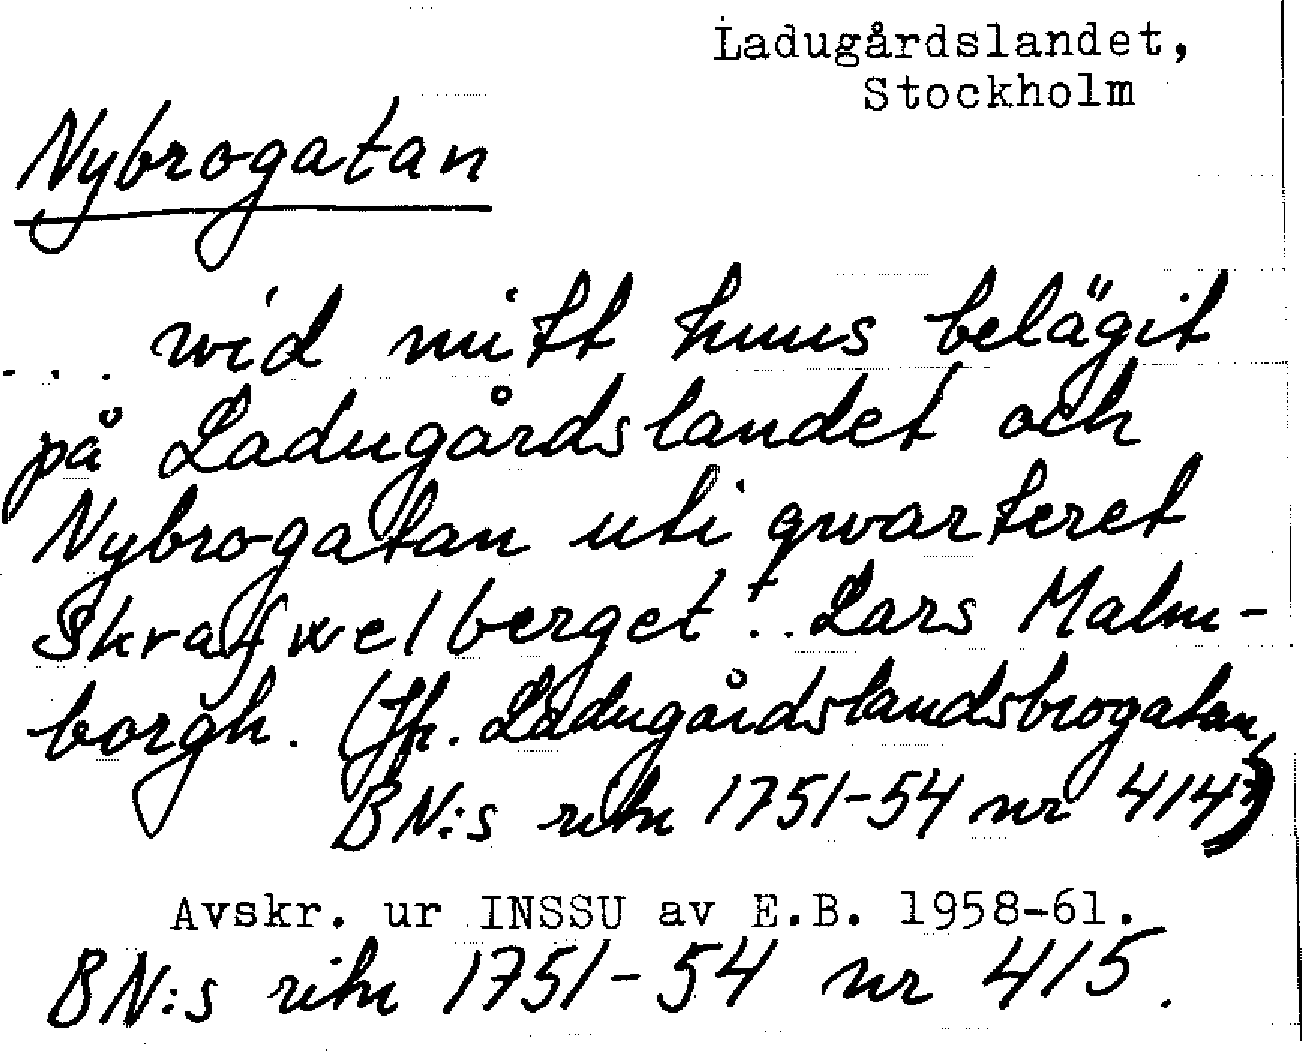 Ladugårdslandet,
Stockholm
Nybrogatan
... wid mitt huus belägit
på Ladugårdslandet och
Nybrogatan uti qwarteret
Skrafwelberget!.. Lars Malm-
borgh. (Jfr. Ladugårdslandsbrogatan,
BN:s rihn 1751-54 nr 414)
Avskr. ur INSSU av E.B. 1958-61.
BN:s rihn 1751-54 nr 415.